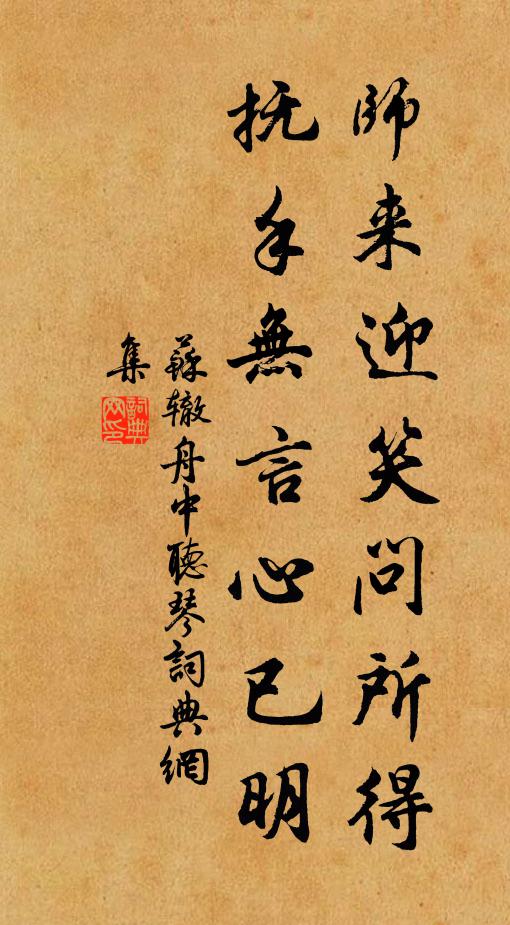 師来迎笑問所得
抚手無言心已明
蘇辙舟中聽琴詞典網
集
詞典
网印